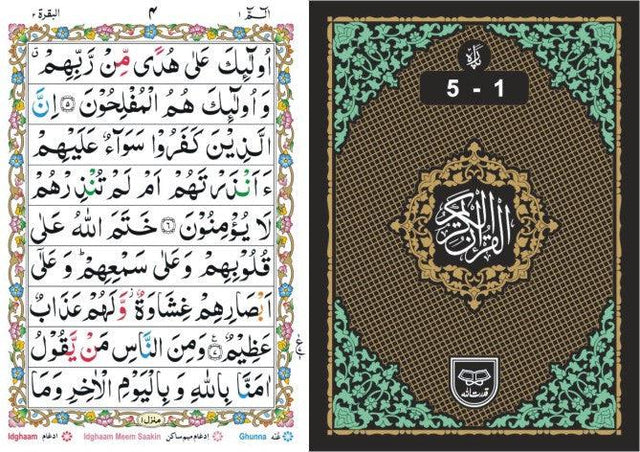 البقرة ٢
٤
الٓمّٓ ١
اُولٰٓئِكَ عَلٰى هُدًى مِّنْ رَّبِّهِمْ ۗ
وَاُولٰٓئِكَ هُمُ الْمُفْلِحُوْنَ ﴿۵﴾ اِنَّ
الَّذِيْنَ كَفَرُوْا سَوَآءٌ عَلَيْهِمْ
ءَاَنْذَرْتَهُمْ اَمْ لَمْ تُنْذِرْهُمْ
لَا يُؤْمِنُوْنَ ﴿۶﴾ خَتَمَ اللّٰهُ عَلٰى
قُلُوْبِهِمْ وَعَلٰى سَمْعِهِمْ ؕ وَعَلٰٓى
اَبْصَارِهِمْ غِشَاوَةٌ ؗ وَّلَهُمْ عَذَابٌ
عَظِيْمٌ ﴿۷﴾ وَمِنَ النَّاسِ مَنْ يَّقُوْلُ
اٰمَنَّا بِاللّٰهِ وَ بِالْيَوْمِ الْاٰخِرِ وَمَا
منزل ١
Idghaam ادغام Idghaam Meem Saakin ادغام میم ساکن Ghunna غنه
پارہ
5 - 1
القرآن الكريم
قدرت الله